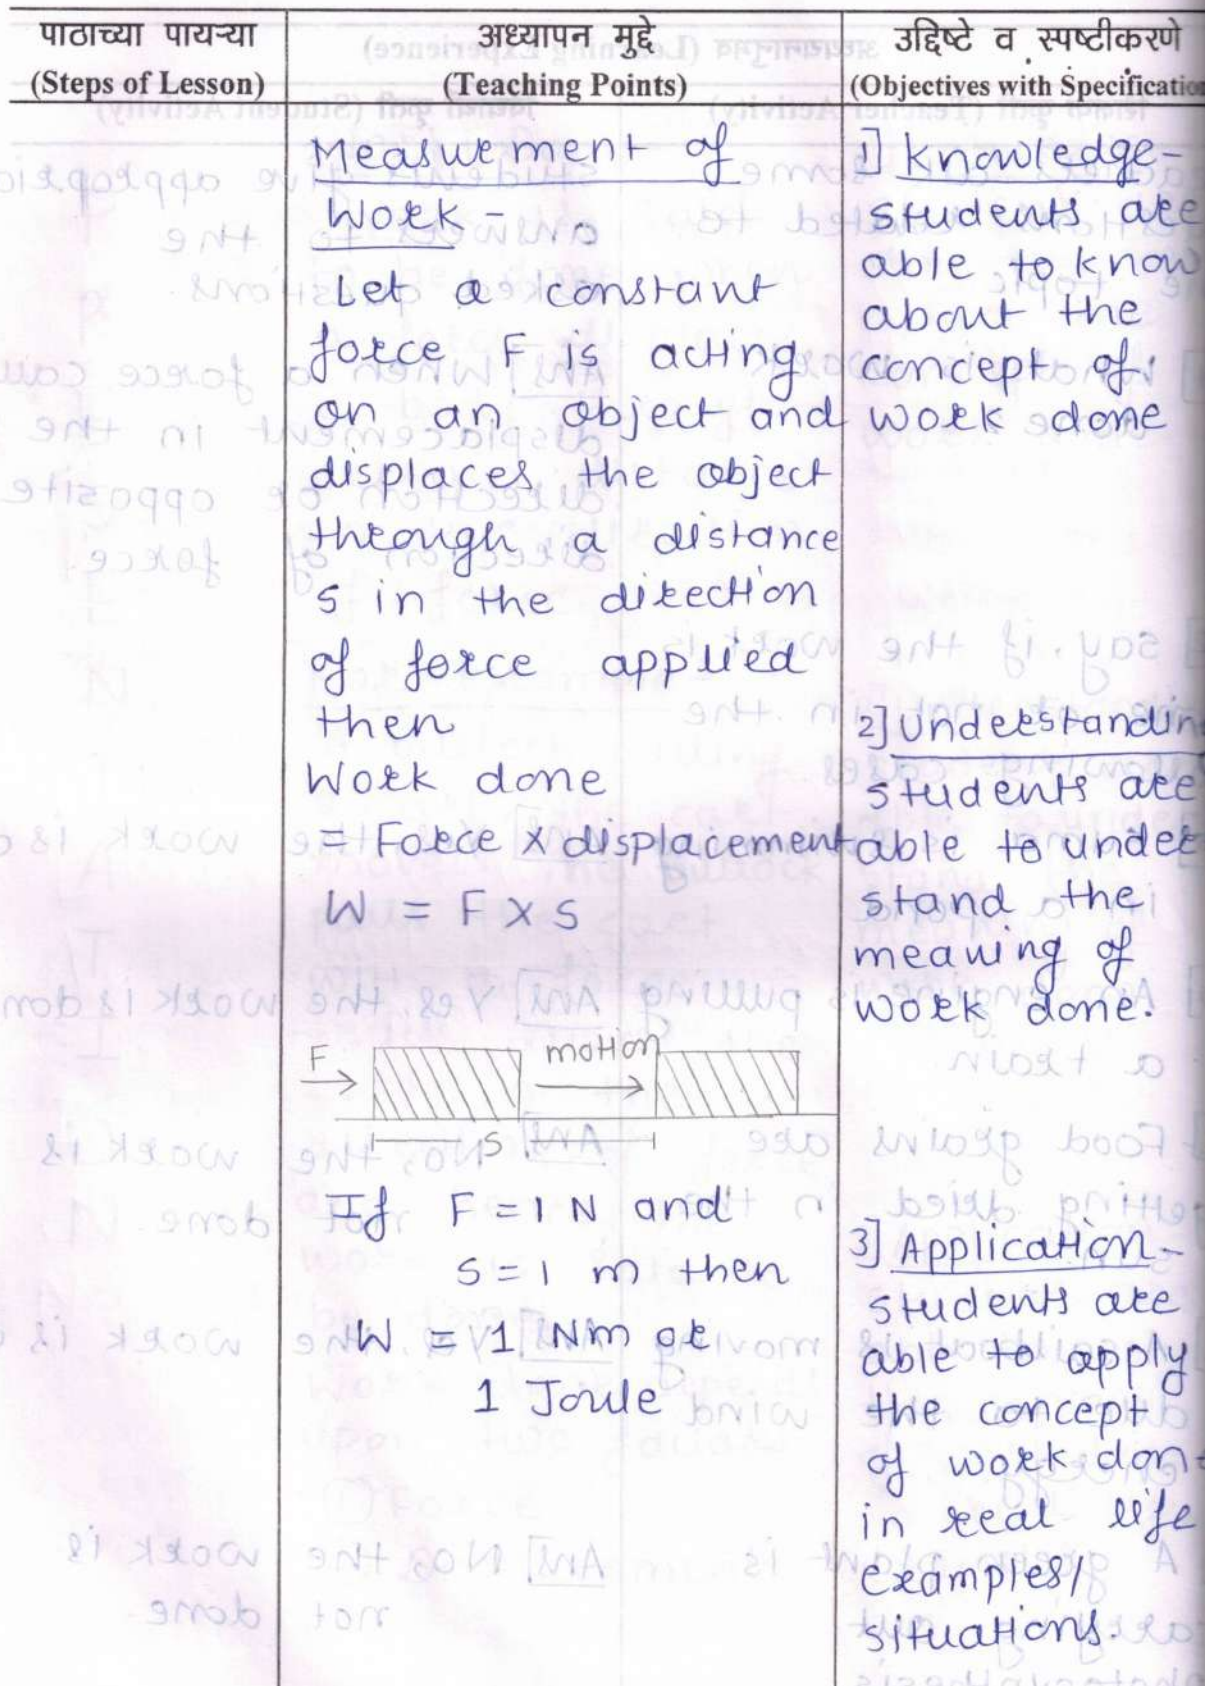 पाठाच्या पायऱ्या
(Steps of Lesson)
अध्यापन मुद्दे
(Teaching Points)
उद्दिष्टे व स्पष्टीकरणे
(Objectives with Specification
Measurement of
Work -
Let a constant
force F is acting
on an object and
displaces the object
through a distance
s in the direction
of force applied
then
Work done
= Force x displacement
W = F x s
F
motion
S
If F = 1 N and
s = 1 m then
W = 1 Nm or
1 Joule
1] Knowledge-
students are
able to know
about the
concept of
work done
2] Understanding
students are
able to under
stand the
meaning of
work done.
3] Application-
students are
able to apply
the concept
of work don
in real life
examples/
situations.